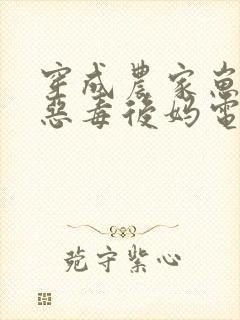 穿成農家崽
惡毒後媽電
苑守紫心